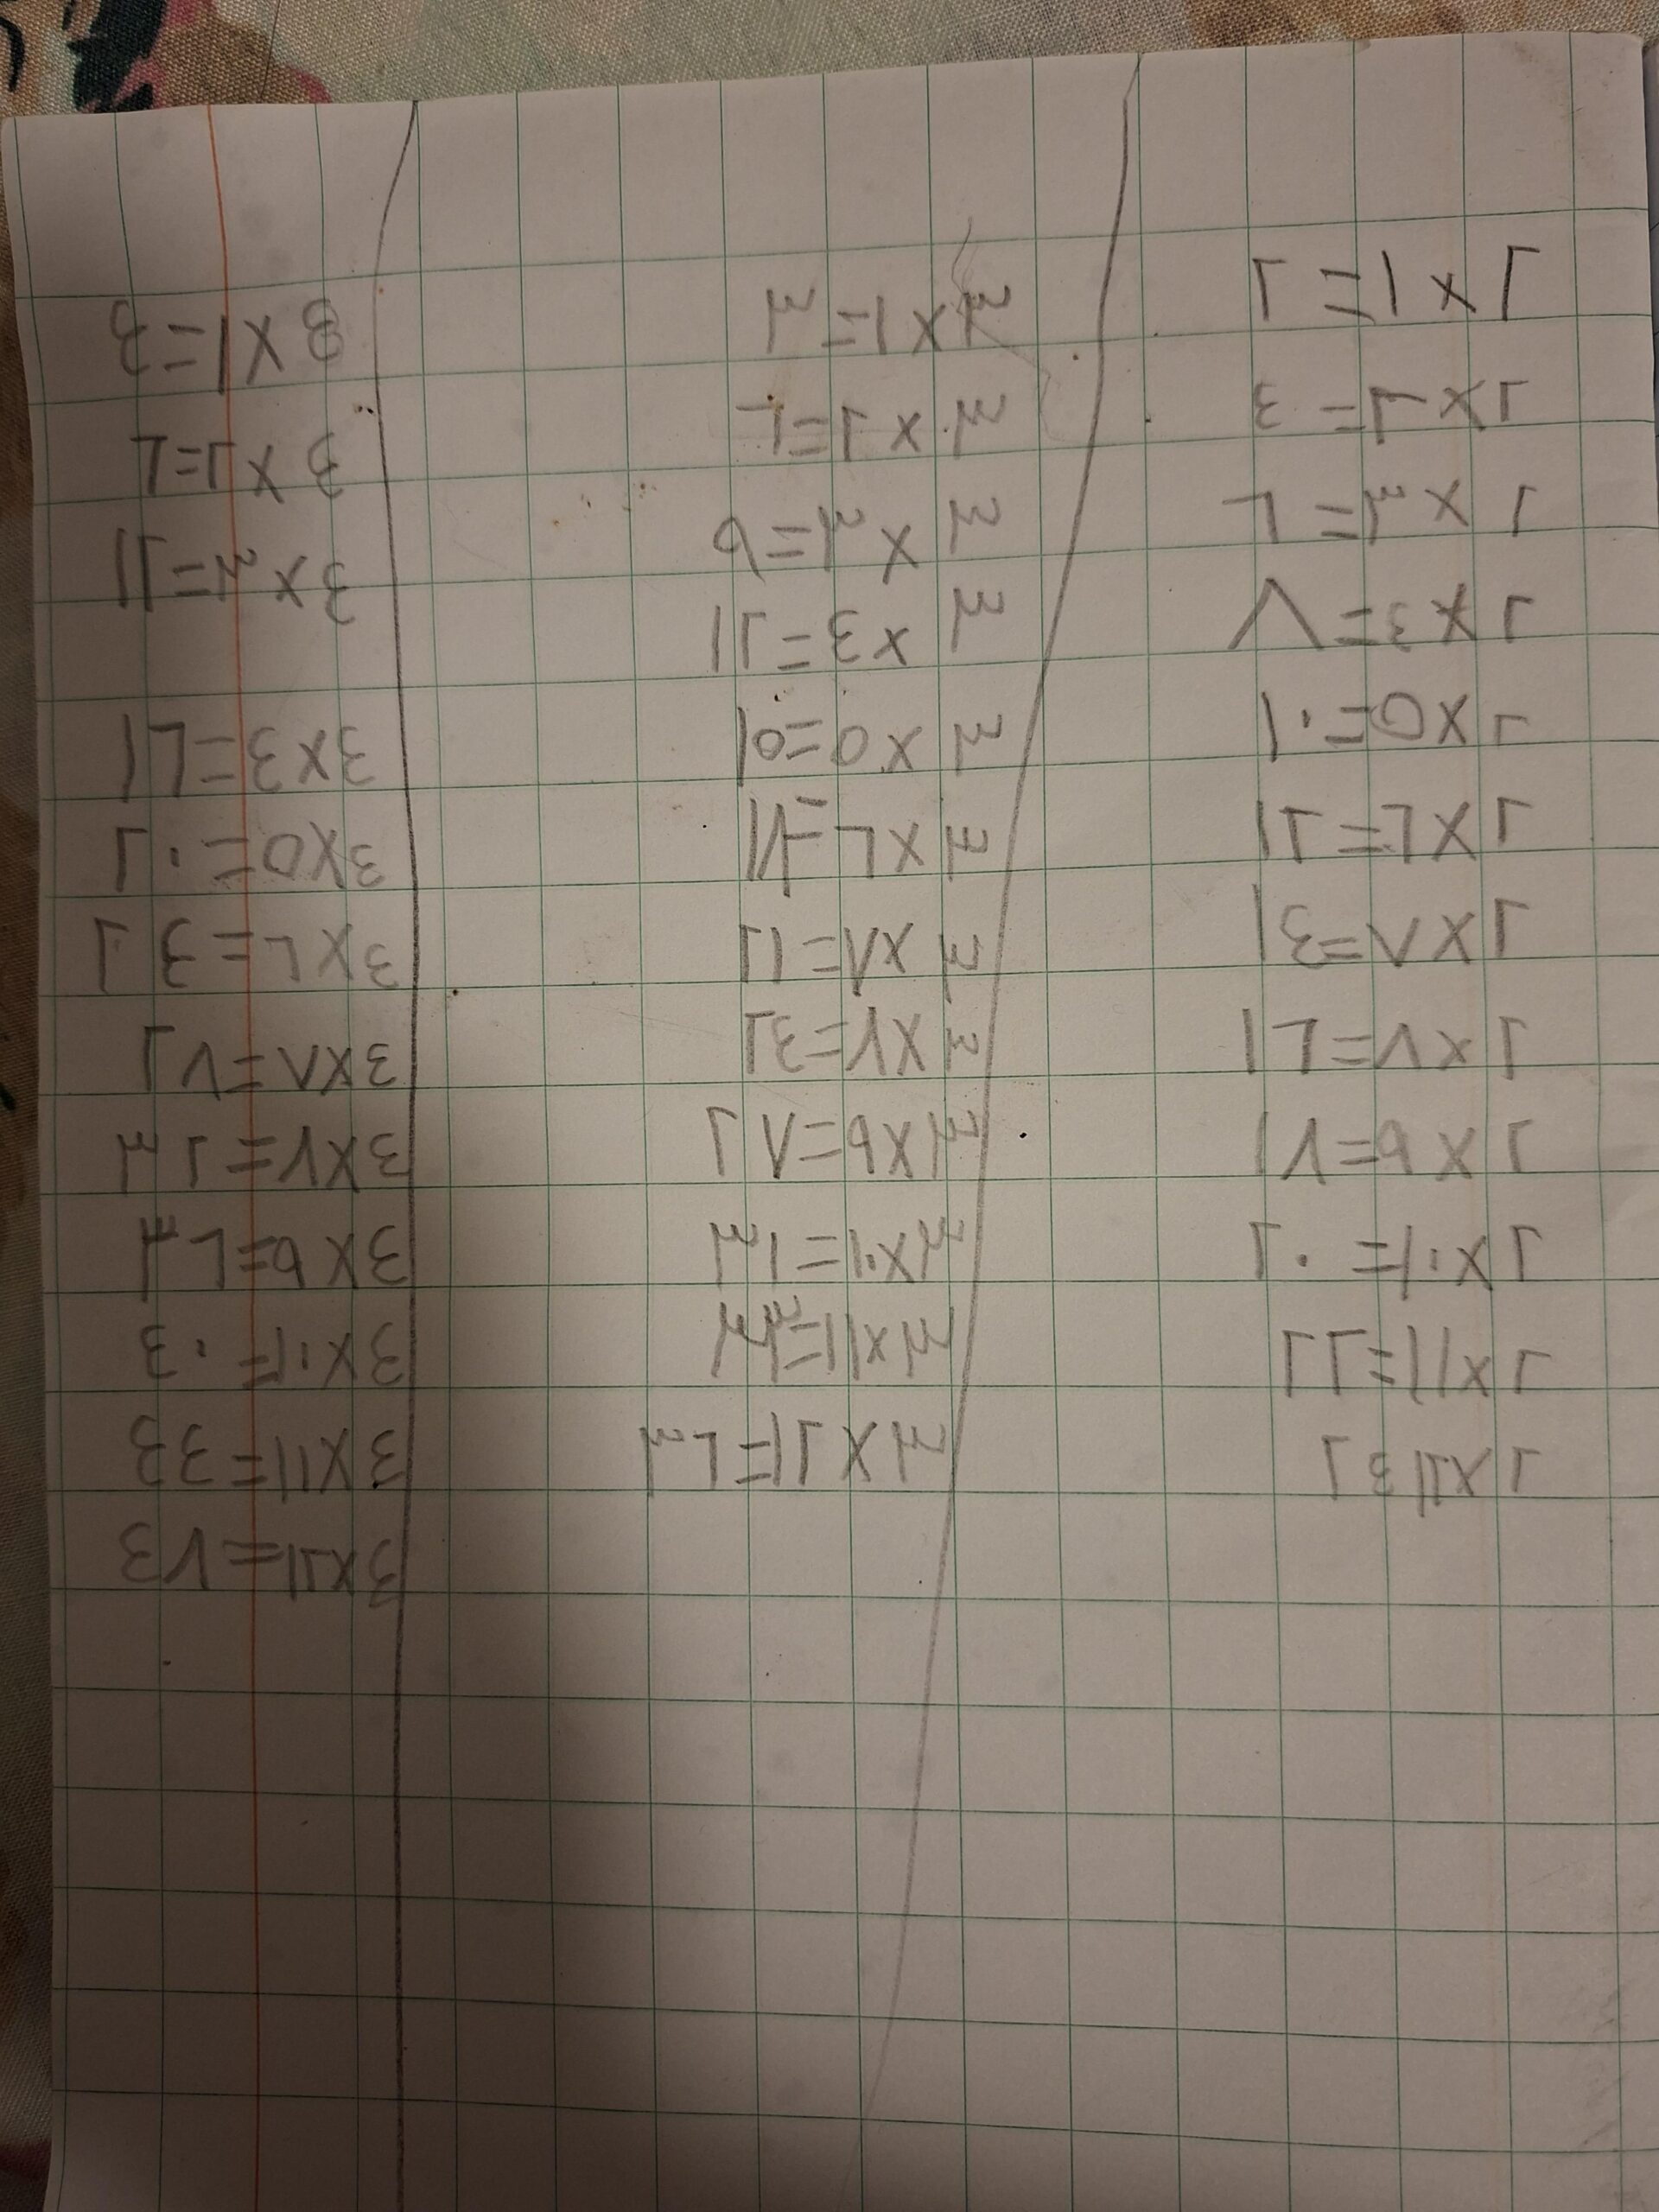 ٢×١=٢
٢×٢=٤
٢×٣=٦
٢×٤=٨
٢×٥=١٠
٢×٦=١٢
٢×٧=١٤
٢×٨=١٦
٢×٩=١٨
٢×١٠=٢٠
٢×١١=٢٢
٢×١٢ ٢٤
٣×١=٣
٣×٢=٦
٣×٣=٩
٣×٤=١٢
٣×٥=١٥
٣×٦=١٨
٣×٧=٢١
٣×٨=٢٤
٣×٩=٢٧
٣×١٠=٣١
٣×١١=٣٣
٣×١٢=٣٦
٤×١=٤
٤×٢=٦
٤×٣=١٢
٤×٤=١٦
٤×٥=٢٠
٤×٦=٢٤
٤×٧=٢٨
٤×٨=٣٢
٤×٩=٣٦
٤×١٠=٤٠
٤×١١=٤٤
٤×١٢=٤٨